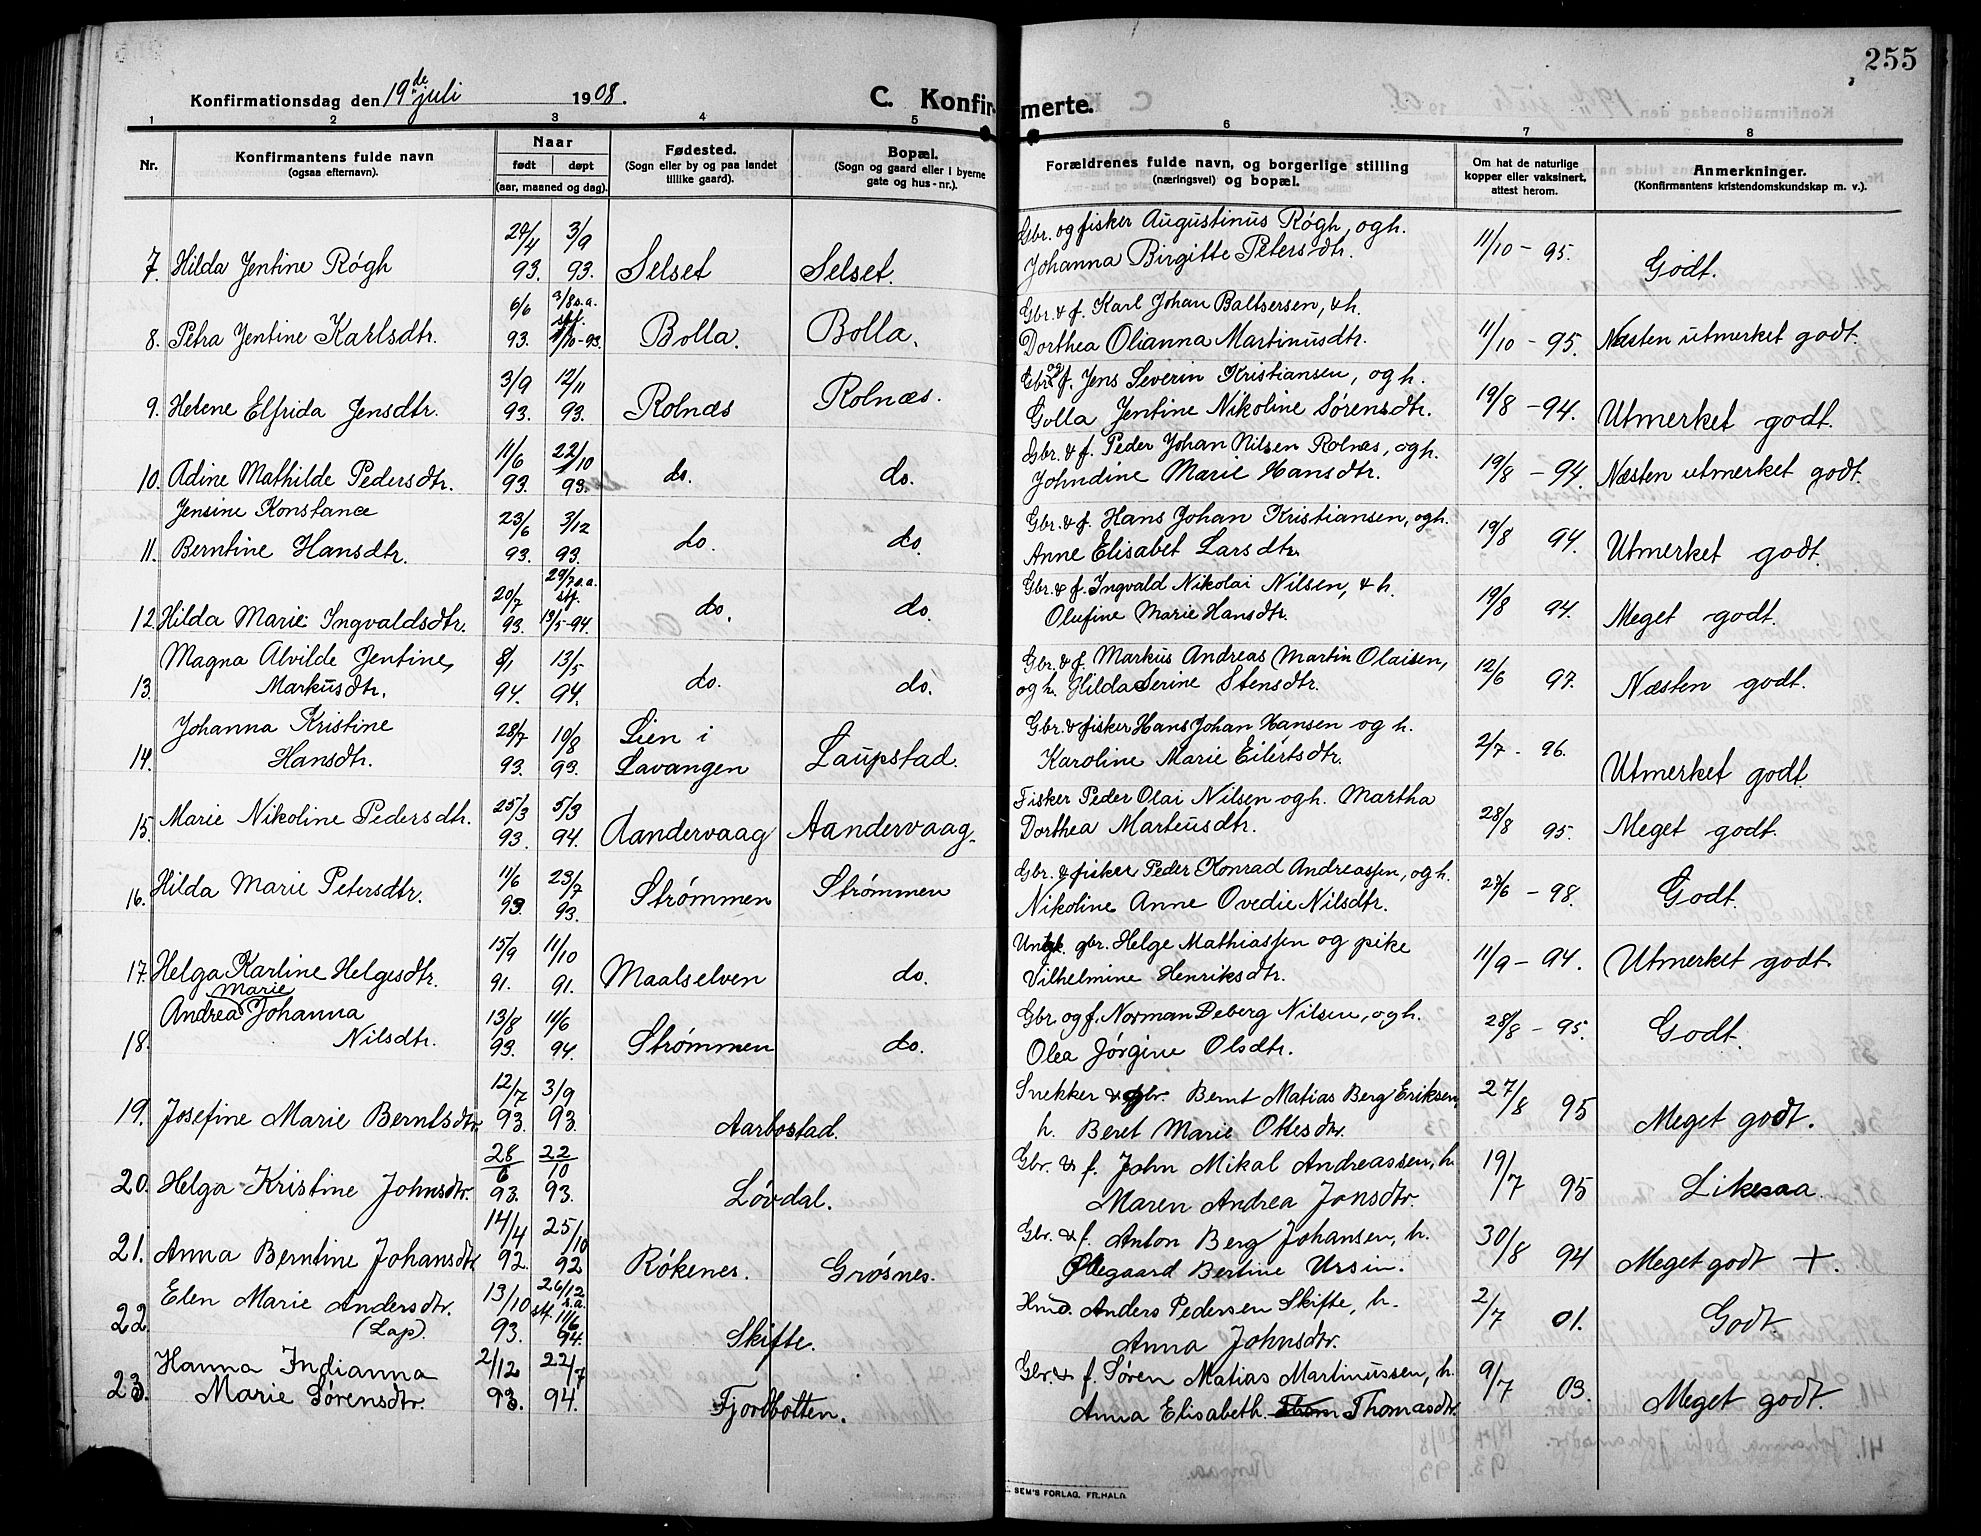 255
Konfirmationsdag den 19de juli 1908.
C. Konfirmerte.
1 2 3 4 5 6 7 8
Nr.
Konfirmantens fulde navn
(ogsaa efternavn).
Naar
født døpt
(aar, maaned og dag).
Fødested.
(Sogn eller by og paa landet
tillike gaard).
Bopæl.
(Sogn og gaard eller i byerne
gate og hus-nr.).
Forældrenes fulde navn, og borgerlige stilling
(næringsvei) og bopæl.
Om hat de naturlige
kopper eller vaksinert,
attest herom.
Anmerkninger.
(Konfirmantens kristendomskundskap m. v.).
29/4 3/9 Gbr. og fisker Augustinus Røgh, og h. 11/10 - 95.
7. Hilda Jentine Røgh 93. 93. Selset Selset. Johanna Birgitte Petersdtr. Godt.
6/6 3/8 s.a. stf. Gbr. & f. Karl Johan Baltsersen, & h.
8. Petra Jentine Karlsdtr. 93. 1/10-93. Bolla. Bolla. Dorthea Olianna Martinusdtr. 11/10 - 95. Næsten utmerket godt.
3/9 12/11 Gbr. og f. Jens Severin Kristiansen, og h.
9. Helene Elfrida Jensdtr. 93. 93. Rolnæs Rolnæs. Golla Jentine Nikoline Sørensdtr. 19/8 - 94. Utmerket godt.
11/6 22/10 Gbr. & f. Peder Johan Nilsen Rolnæs, og h.
10. Adine Mathilde Pedersdtr. 93. 93. do. do. Johndine Marie Hansdtr. 19/8 - 94. Næsten utmerket godt.
Jensine Konstance 23/6 3/12 Gbr. & f. Hans Johan Kristiansen, og h.
11. Berntine Hansdtr. 93. 93. do. do. Anne Elisabet Larsdtr. 19/8 94. Utmerket godt.
20/7 29/7 s.a. stf. Gbr. & f. Ingvald Nikolai Nilsen, & h.
12. Hilda Marie Ingvaldsdtr. 93. 13/5-94. do. do. Olufine Marie Hansdtr. 19/8 94. Meget godt.
Magna Alvilde Jentine, 8/1 13/5 Gbr. & f. Markus Andreas Martin Olaisen,
13. Markusdtr. 94. 94. do. do. og h. Hilda Serine Stensdtr. 12/6 97. Næsten godt.
Johanna Kristine 28/7 10/8 Lien i Gbr. & fisker Hans Johan Hansen og h.
14. Hansdtr. 93. 93. Lavangen Laupstad. Karoline Marie Eilertsdtr. 2/7 - 96. Utmerket godt
25/3 5/3 Fisker Peder Olai Nilsen og h. Martha
15. Marie Nikoline Pedersdtr. 93. 94. Aandervaag Aandervaag. Dorthea Marteusdtr. 28/8 95. Meget godt.
11/6 23/7 Gbr. & fisker Peder Konrad Andreassen, og h.
16. Hilda Marie Petersdtr. 93. 93. Strømmen Strømmen Nikoline Anne Ovedie Nilsdtr. 27/6 - 98. Godt.
15/9 11/10 Ungk. gbr. Helge Mathiassen og pike
17. Helga Karline Helgesdtr. 91. 91. Maalselven do. Vilhelmine Henriksdtr. 11/9 - 94. Utmerket godt.
Marie
Andrea Johanna 13/8 11/6 Gbr og f. Norman Deberg Nilsen, og h.
18. Nilsdtr. 93. 94. Strømmen do. Olea Jørgine Olsdtr. 28/8 - 95. Godt.
12/7 3/9 Snekker & gbr. Bernt Matias Berg Eriksen,
19. Josefine Marie Berntsdtr. 93. 93. Aarbostad. h. Beret Marie Ottesdtr. 27/8 95 Meget godt.
28/6 22/10 Gbr. & f. John Mikal Andreassen, h.
20. Helga Kristine Johnsdtr. 93. 93. Løvdal. Maren Andrea Jonsdtr. 19/7 95 Likesaa.
14/4 25/10 Gbr. & f. Anton Berg Johansen, h.
21. Anna Berntine Johansdtr. 92. 92 Røkenes. Grøsnes. Ollegaard Bertine Ursin. 30/8 94 Meget godt +.
Elen Marie Andersdtr. 13/10 26/12 s.a. stf. 11/6 Hmd. Anders Pedersen Skifte, h.
22. (Lap). 93. 94. Skifte. Anna Johnsdtr. 2/7 01. Godt
Hanna Indianna 2/12 22/7 Gbr. & f. Søren Matias Martinussen, h.
23. Marie Sørensdtr. 93. 94. Fjordbotten. Anna Elisabeth Thom Thomasdtr. 9/7 03. Meget godt.
SEM'S FORLAG, FR.HALD.